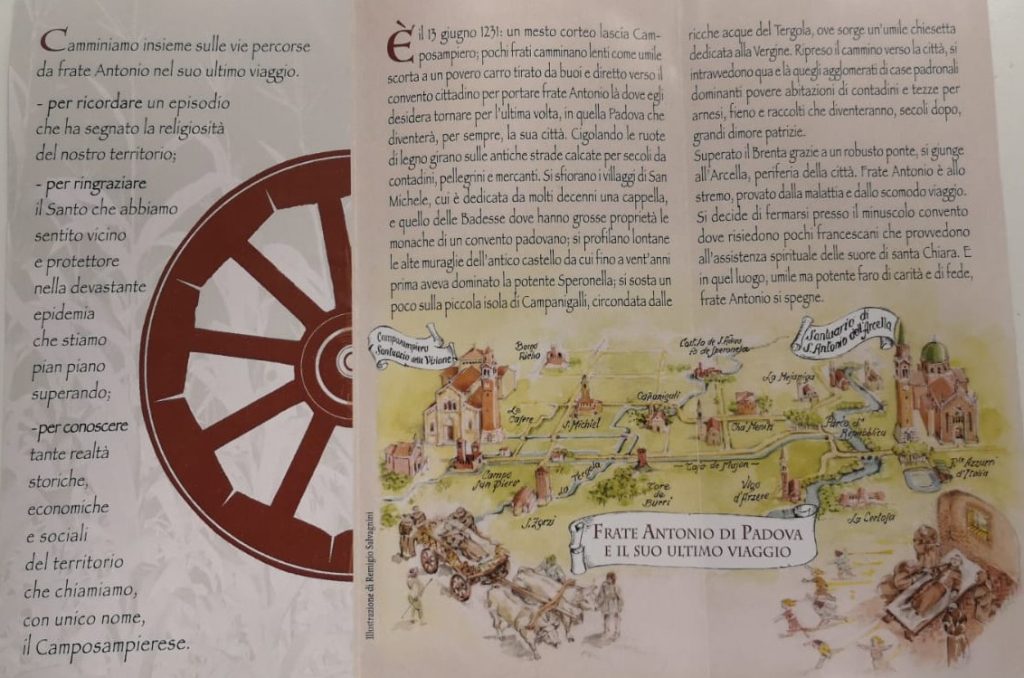 Camminiamo insieme sulle vie percorse
da frate Antonio nel suo ultimo viaggio.
- per ricordare un episodio
che ha segnato la religiosità
del nostro territorio;
- per ringraziare
il Santo che abbiamo
sentito vicino
e protettore
nella devastante
epidemia
che stiamo
pian piano
superando;
-per conoscere
tante realtà
storiche,
economiche
e sociali
del territorio
che chiamiamo,
con unico nome,
il Camposampierese.
È il 13 giugno 1231: un mesto corteo lascia Cam-
posampiero; pochi frati camminano lenti come umile
scorta a un povero carro tirato da buoi e diretto verso il
convento cittadino per portare frate Antonio là dove egli
desidera tornare per l'ultima volta, in quella Padova che
diventerà, per sempre, la sua città. Cigolando le ruote
di legno girano sulle antiche strade calcate per secoli da
contadini, pellegrini e mercanti. Si sfiorano i villaggi di San
Michele, cui è dedicata da molti decenni una cappella,
e quello delle Badesse dove hanno grosse proprietà le
monache di un convento padovano; si profilano lontane
le alte muraglie dell'antico castello da cui fino a vent'anni
prima aveva dominato la potente Speronella; si sosta un
poco sulla piccola isola di Campanigalli, circondata dalle
ricche acque del Tergola, ove sorge un'umile chiesetta
dedicata alla Vergine. Ripreso il cammino verso la città, si
intravvedono qua e là quegli agglomerati di case padronali
dominanti povere abitazioni di contadini e tezze per
arnesi, fieno e raccolti che diventeranno, secoli dopo,
grandi dimore patrizie.
Superato il Brenta grazie a un robusto ponte, si giunge
all'Arcella, periferia della città. Frate Antonio è allo
stremo, provato dalla malattia e dallo scomodo viaggio.
Si decide di fermarsi presso il minuscolo convento
dove risiedono pochi francescani che provvedono
all'assistenza spirituale delle suore di santa Chiara. E
in quel luogo, umile ma potente faro di carità e di fede,
frate Antonio si spegne.
Camposampiero
Santuario della Visione
Santuario di
S. Antonio dell'Arcella
Borgo
La Mejaniga
S. Michiel
Vigo
d'Arzere
La Certosa
Campo
San Piero
Tergola
Tore
de
Burri
S. Zorzi
d'Italia
FRATE ANTONIO DI PADOVA
E IL SUO ULTIMO VIAGGIO
Illustrazione di Remigio Salvagnini